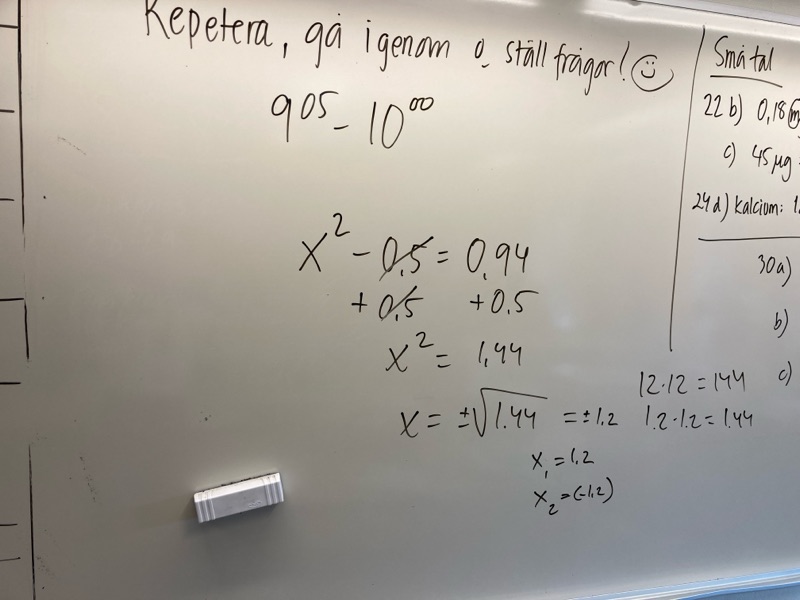 Repetera, gå igenom o ställ frågor! ☺
9⁰⁵ – 10⁰⁰
x² – 0,5 = 0,94
+ 0,5 + 0.5
x² = 1,44
x = ±√1.44 = ±1.2
x₁ = 1,2
x₂ = (–1,2)
12·12 = 144
1.2·1.2 = 1.44
Små tal
22 b) 0,18
c) 45 µg
24 d) Kalcium: 1
30 a)
b)
c)